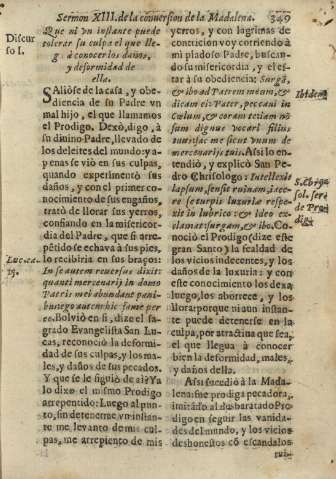 Sermon XIII. de la conuersion de la Madalena. 349
Discur
so I.
Que ni vn instante puede
tolerar su culpa el que lle-
gó à conocer los daños,
y deformidad de
ella.
SAlióse de la casa, y obe-
diencia de su Padre vn
mal hijo, el que llamamos
el Prodigo. Dexò, digo, à
su diuino Padre, lleuado de
los deleites del mundo: y a-
penas se vio en sus culpas,
quando experimentò sus
daños, y con el primer co-
nocimiento de sus engaños,
trató de llorar sus yerros,
confiando en la misericor-
dia del Padre, que si arre-
pẽtido se echaua à sus pies,
lo recibiria en sus braços:
Lucæ.
15.
In se autem reuersus dixit:
quanti mercenarij in domo
Patris mei abundant pani-
bus: ego autem hic fame per
eo. Boluiò en si, dize el sa-
grado Euangelista San Lu-
cas, reconociò la deformi-
dad de sus culpas, y los ma-
les, y daños de sus pecados.
Y que se le siguiò de ai? Ya
lo dixo el mismo Prodigo
arrepentido: Luego al pun-
to, sin detenerme vn instan-
te me leuanto de mis cul-
pas, me arrepiento de mis
yerros, y con lagrimas de
contricion voy corriendo à
mi piadoso Padre, buscan-
do su misericordia, y el es-
tar à su obediencia: Surgã,
Ibidem
& ibo ad Patrem meum, &
dicam ei: Pater, peccaui in
Cœlum, & coram te: iam nõ
sum dignus vocari filius
tuus: fac me sicut vnum de
mercenarijs tuis. Assi lo en-
tendiò, y explicò San Pe-
dro Chrisologo: Intellexit
S. Chriso
sol. ser
de Pro
digo
lapsum, sensit ruinam, iace-
re se turpis luxuriæ respe-
xit in lubrico: & ideo ex-
clamat: surgam, & ibo. Co-
nociò el Prodigo (dize este
gran Santo) la fealdad de
los vicios indecentes, y los
daños de la luxuria: y con
este conocimiento los dexa
luego, los aborrece, y los
llora: porque ni aun instante
puede detenerse en la
culpa, por atractina que sea,
el que llegua à conocer
bien la deformidad, males,
y daños della.
Assi sucediò à la Mada-
lena: fue prodiga pecadora,
imitãdo al desbaratado Pro
digo en seguir las vanida-
des del mundo, y los vicios
deshonestos cõ escandalos
cui-